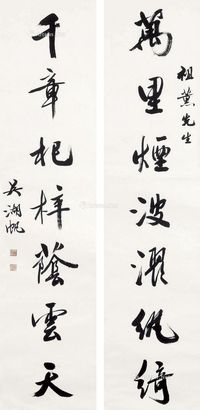 萬里煙波濯紈綺
祖薰先生
千章杞梓蔭雲天
吳湖帆